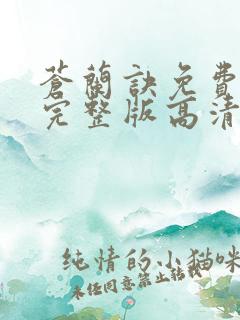 蒼蘭訣免費
完整版高清
純情的小猫咪
未经同意禁止转载